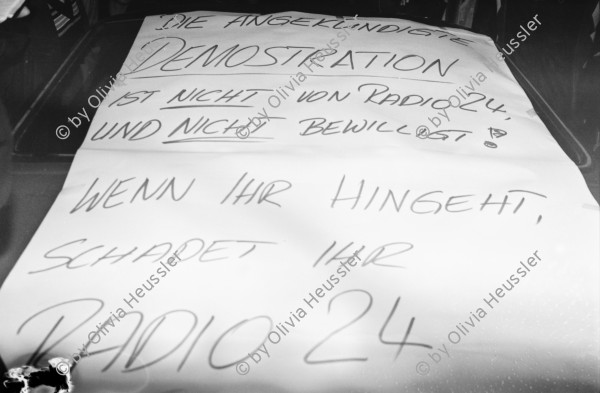 DIE ANGEKÜNDIGTE
DEMOSTRATION
IST NICHT VON RADIO 24,
UND NICHT BEWILLIGT!
WENN IHR HINGEHT,
SCHADET IHR
RADIO 24
© by Olivia Heussler
© by Olivia Heussler
© by Olivia Heussler
© by Olivia Heussler
© by Olivia Heussler
© by Olivia Heussler